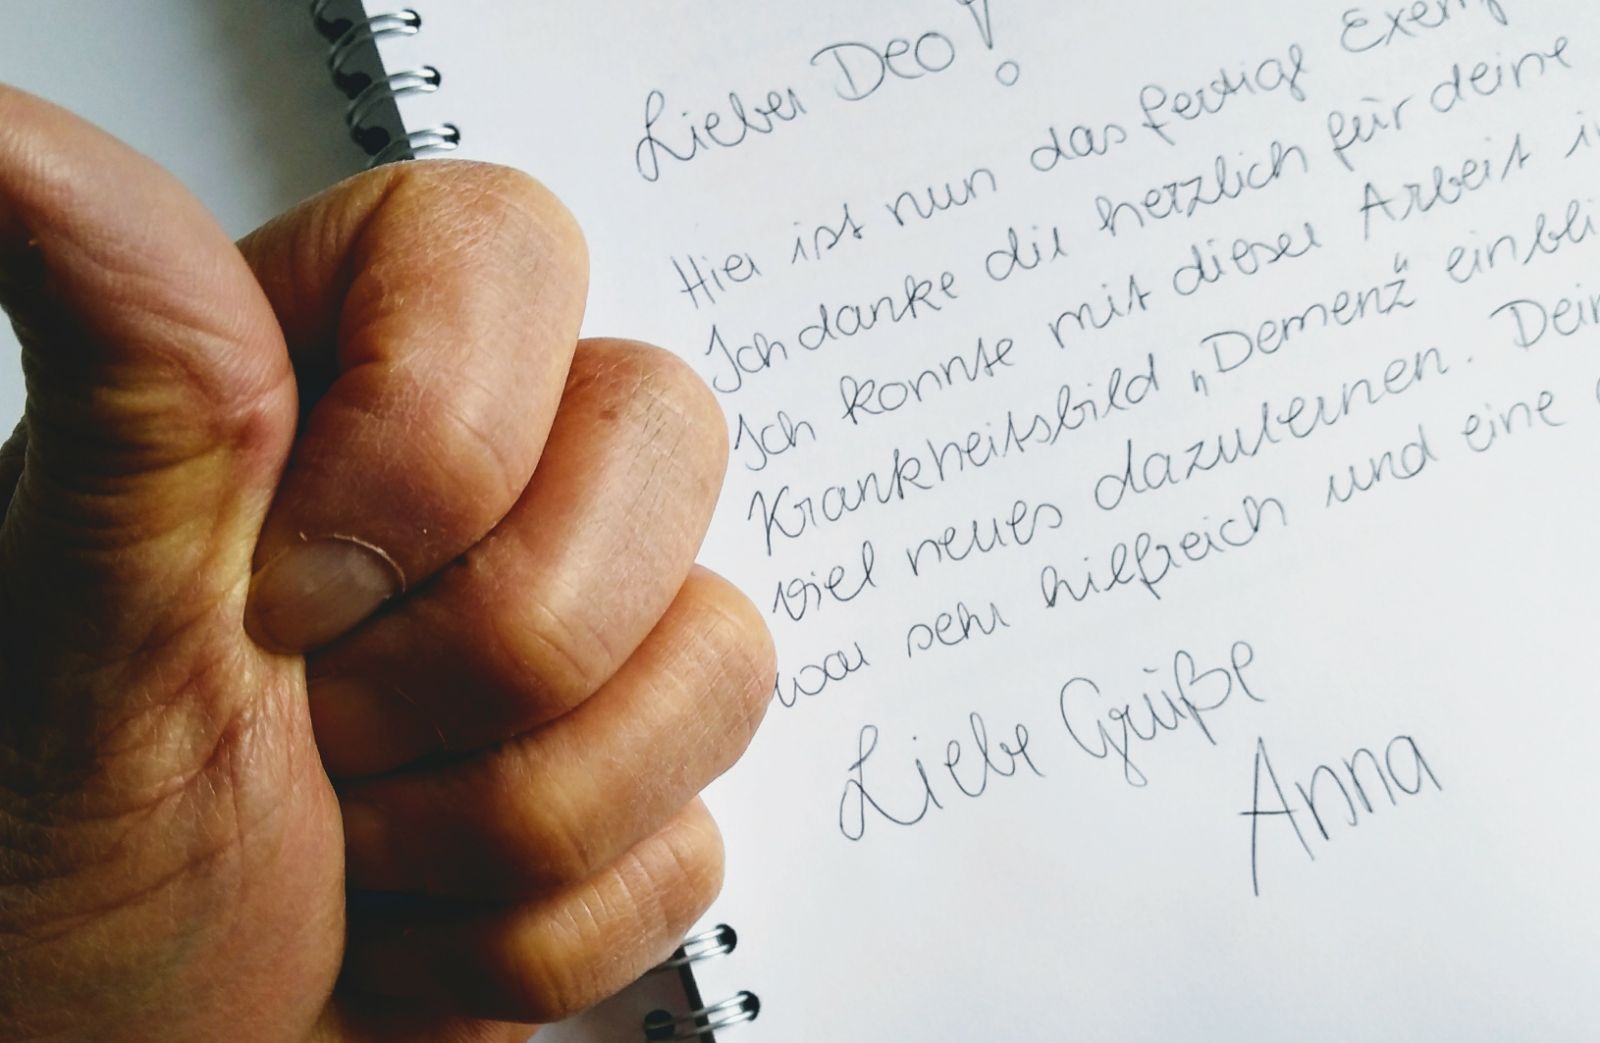 Lieber Deo!
Hier ist nun das fertige
Ich danke dir herzlich für deine
Ich konnte mit dieser Arbeit
Krankheitsbild „Demenz"
viel neues dazulernen.
war sehr hilfreich und eine
Liebe Grüße
Anna